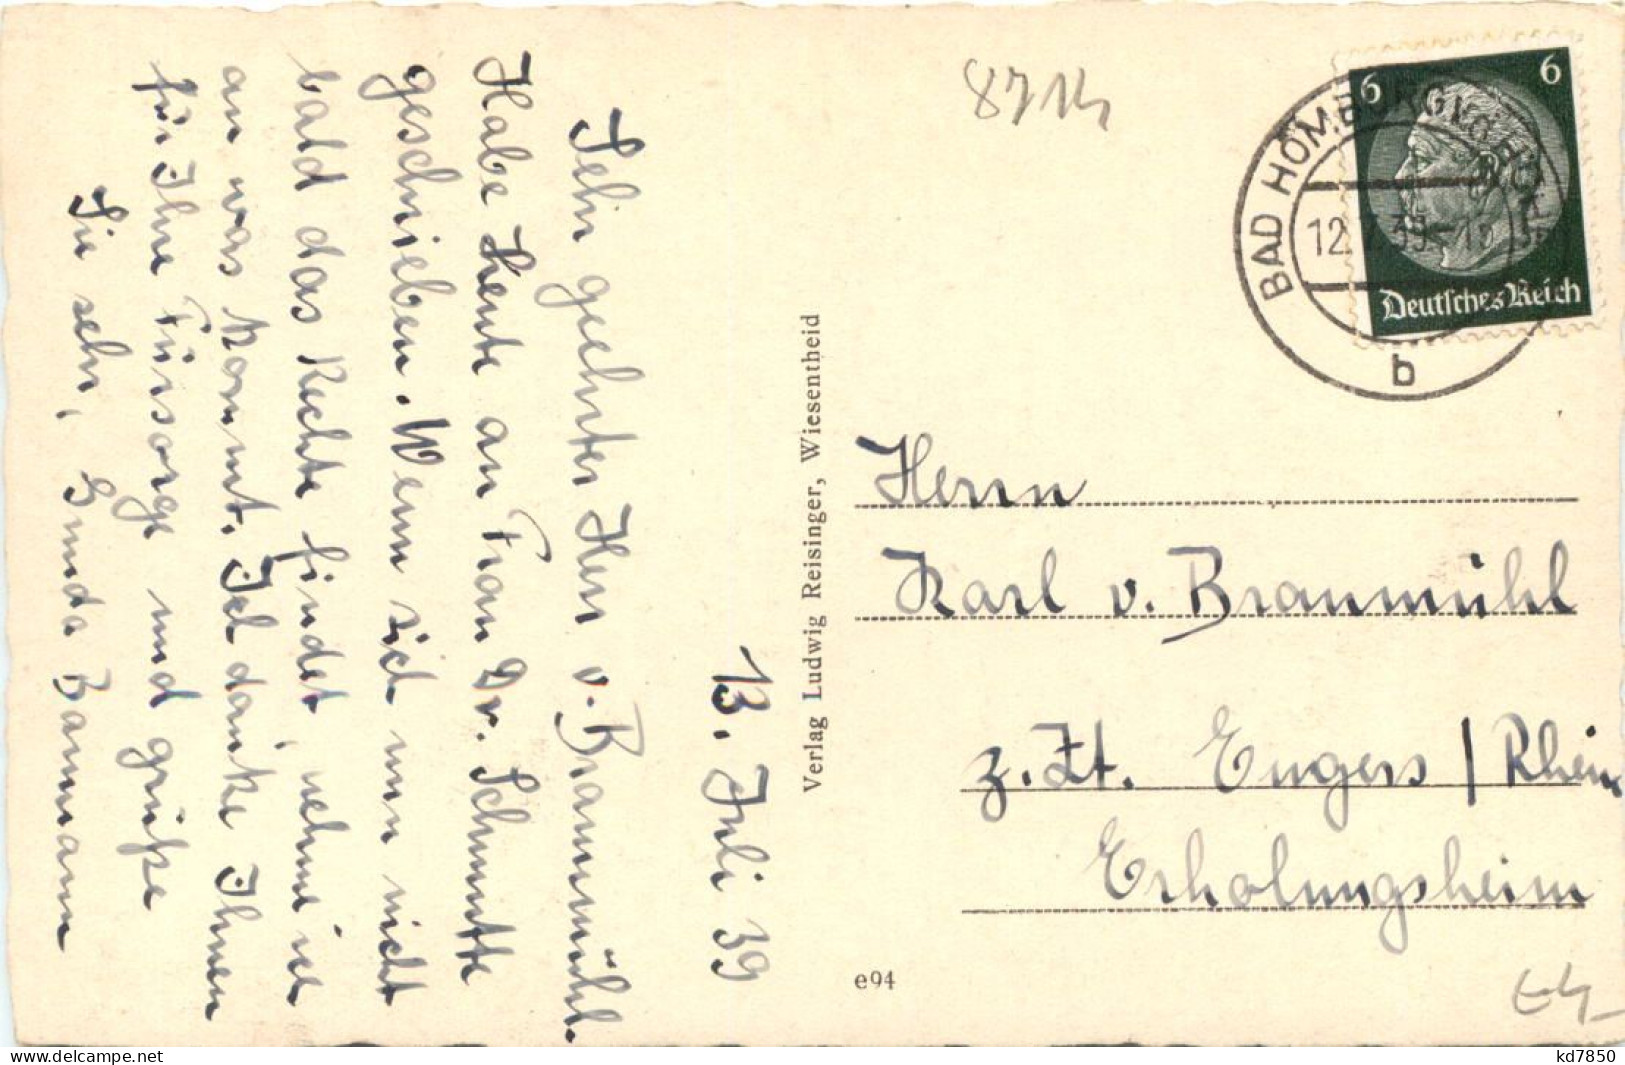 13. Juli 39
Sehr geehrter Herr v. Braunmühl.
Habe heute an Frau Dr. Schmutte
geschrieben. Wenn sich nun nicht
bald das Rechte findet, nehme ich
an was kommt. Ich danke Ihnen
für Ihre Fürsorge und grüße
Sie sehr, Gunda Baumann
Verlag Ludwig Reisinger, Wiesentheid
e94
8714
6 6
Deutsches Reich
BAD HOMBURG v.d. HÖHE
12.7.39
b
Herrn
Karl v. Braunmühl
z. Zt. Engers / Rhein
Erholungsheim
www.delcampe.net
kd7850